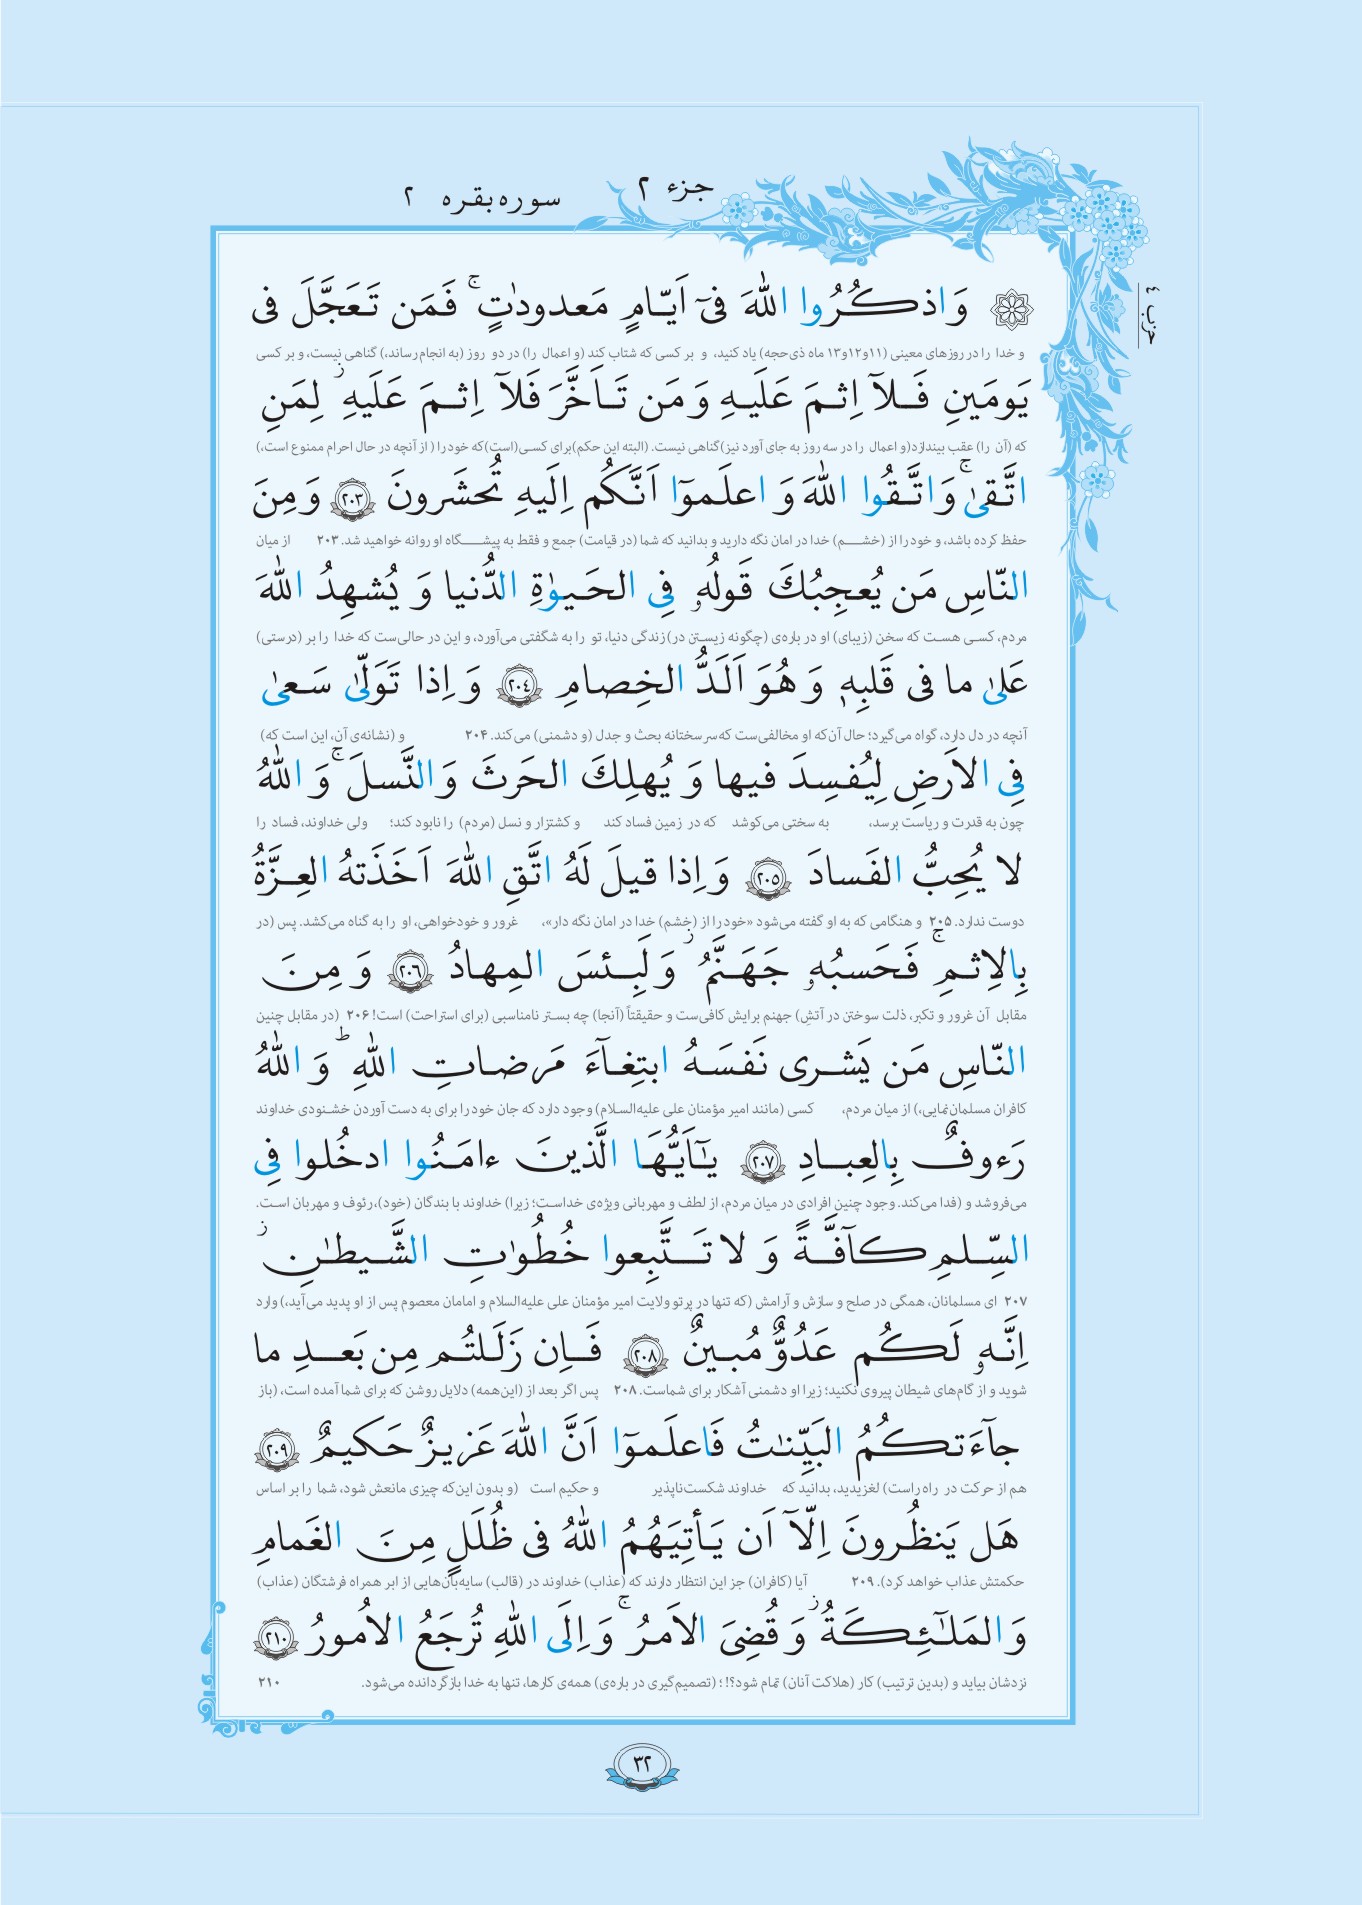 جزء ۲
سوره بقره ۲
حزب ٤
وَ اذكُرُوا اللهَ فىٓ اَيّامٍ مَعدودٰتٍ ۚ فَمَن تَعَجَّلَ فى
و خدا را در روزهای معینی (۱۱و۱۲و۱۳ ماه ذی‌حجه) یاد کنید، و بر کسی که شتاب کند (و اعمال را) در دو روز (به انجام رساند،) گناهی نیست، و بر کسی
يَومَينِ فَلآ اِثمَ عَلَيهِ وَ مَن تَاَخَّرَ فَلآ اِثمَ عَلَيهِ ز لِمَنِ
که (آن را) عقب بیندازد(و اعمال را در سه روز به جای آورد نیز)گناهی نیست. (البته این حکم)برای کسی(است)که خود را ( از آنچه در حال احرام ممنوع است،)
اتَّقىٰ ۚ وَ اتَّقُوا اللهَ وَ اعلَموٓا اَنَّكُم اِلَيهِ تُحشَرونَ ﴿٢٠٣﴾ وَ مِنَ
حفظ کرده باشد، و خود را از (خشم) خدا در امان نگه دارید و بدانید که شما (در قیامت) جمع و فقط به پیشگاه او روانه خواهید شد. ۲۰۳ از میان
النّاسِ مَن يُعجِبُكَ قَولُهُۥ فِى الحَيوٰةِ الدُّنيا وَ يُشهِدُ اللهَ
مردم، کسی هست که سخن (زیبای) او در باره‌ی (چگونه زیستن در) زندگی دنیا، تو را به شگفتی می‌آورد، و این در حالی‌ست که خدا را بر (درستی)
عَلىٰ ما فى قَلبِهٖ وَ هُوَ اَلَدُّ الخِصامِ ﴿٢٠٤﴾ وَ اِذا تَوَلّىٰ سَعىٰ
آنچه در دل دارد، گواه می‌گیرد؛ حال آن‌که او مخالفی‌ست که سرسختانه بحث و جدل (و دشمنی) می‌کند. ۲۰۴ و (نشانه‌ی آن، این است که)
فِى الاَرضِ لِيُفسِدَ فيها وَ يُهلِكَ الحَرثَ وَ النَّسلَ ۚ وَ اللهُ
چون به قدرت و ریاست برسد، به سختی می‌کوشد که در زمین فساد کند و کشتزار و نسل (مردم) را نابود کند؛ ولی خداوند، فساد را
لا يُحِبُّ الفَسادَ ﴿٢٠٥﴾ وَ اِذا قيلَ لَهُ اتَّقِ اللهَ اَخَذَتهُ العِزَّةُ
دوست ندارد. ۲۰۵ و هنگامی که به او گفته می‌شود «خود را از (خشم) خدا در امان نگه دار»، غرور و خودخواهی، او را به گناه می‌کشد. پس (در
بِالاِثمِ ۚ فَحَسبُهُۥ جَهَنَّمُ ز وَ لَبِئسَ المِهادُ ﴿٢٠٦﴾ وَ مِنَ
مقابل آن غرور و تکبر، ذلت سوختن در آتشِ) جهنم برایش کافی‌ست و حقیقتاً (آنجا) چه بستر نامناسبی (برای استراحت) است! ۲۰۶ (در مقابل چنین
النّاسِ مَن يَشرى نَفسَهُ ابتِغآءَ مَرضاتِ اللهِ ط وَ اللهُ
کافران مسلمان‌نمایی،) از میان مردم، کسی (مانند امیر مؤمنان علی علیه‌السلام) وجود دارد که جان خود را برای به دست آوردن خشنودی خداوند
رَءوفٌ بِالعِبادِ ﴿٢٠٧﴾ يٰٓاَيُّهَا الَّذينَ ءامَنُوا ادخُلوا فِى
می‌فروشد و (فدا می‌کند. وجود چنین افرادی در میان مردم، از لطف و مهربانی ویژه‌ی خداست؛ زیرا) خداوند با بندگان (خود)،رئوف و مهربان است.
السِّلمِ كآفَّةً وَ لا تَتَّبِعوا خُطُوٰتِ الشَّيطٰنِ ز
۲۰۷ ای مسلمانان، همگی در صلح و سازش و آرامش (که تنها در پرتو ولایت امیر مؤمنان علی علیه‌السلام و امامان معصوم پس از او پدید می‌آید،) وارد
اِنَّهُۥ لَكُم عَدُوٌّ مُبينٌ ﴿٢٠٨﴾ فَاِن زَلَلتُم مِن بَعدِ ما
شوید و از گام‌های شیطان پیروی نکنید؛ زیرا او دشمنی آشکار برای شماست. ۲۰۸ پس اگر بعد از (این‌همه) دلایل روشن که برای شما آمده است، (باز
جآءَتكُمُ البَيِّنٰتُ فَاعلَموٓا اَنَّ اللهَ عَزيزٌ حَكيمٌ ﴿٢٠٩﴾
هم از حرکت در راه راست) لغزیدید، بدانید که خداوند شکست‌ناپذیر و حکیم است (و بدون این‌که چیزی مانعش شود، شما را بر اساس
هَل يَنظُرونَ اِلّآ اَن يَأتِيَهُمُ اللهُ فى ظُلَلٍ مِنَ الغَمامِ
حکمتش عذاب خواهد کرد). ۲۰۹ آیا (کافران) جز این انتظار دارند که (عذاب) خداوند در (قالب) سایه‌بان‌هایی از ابر همراه فرشتگان (عذاب)
وَ المَلٰٓئِكَةُ ز وَ قُضِىَ الاَمرُ ۚ وَ اِلَى اللهِ تُرجَعُ الاُمورُ ﴿٢١٠﴾
نزدشان بیاید و (بدین ترتیب) کار (هلاکت آنان) تمام شود؟! ؛ (تصمیم‌گیری در باره‌ی) همه‌ی کارها، تنها به خدا بازگردانده می‌شود. ۲۱۰
۳۲